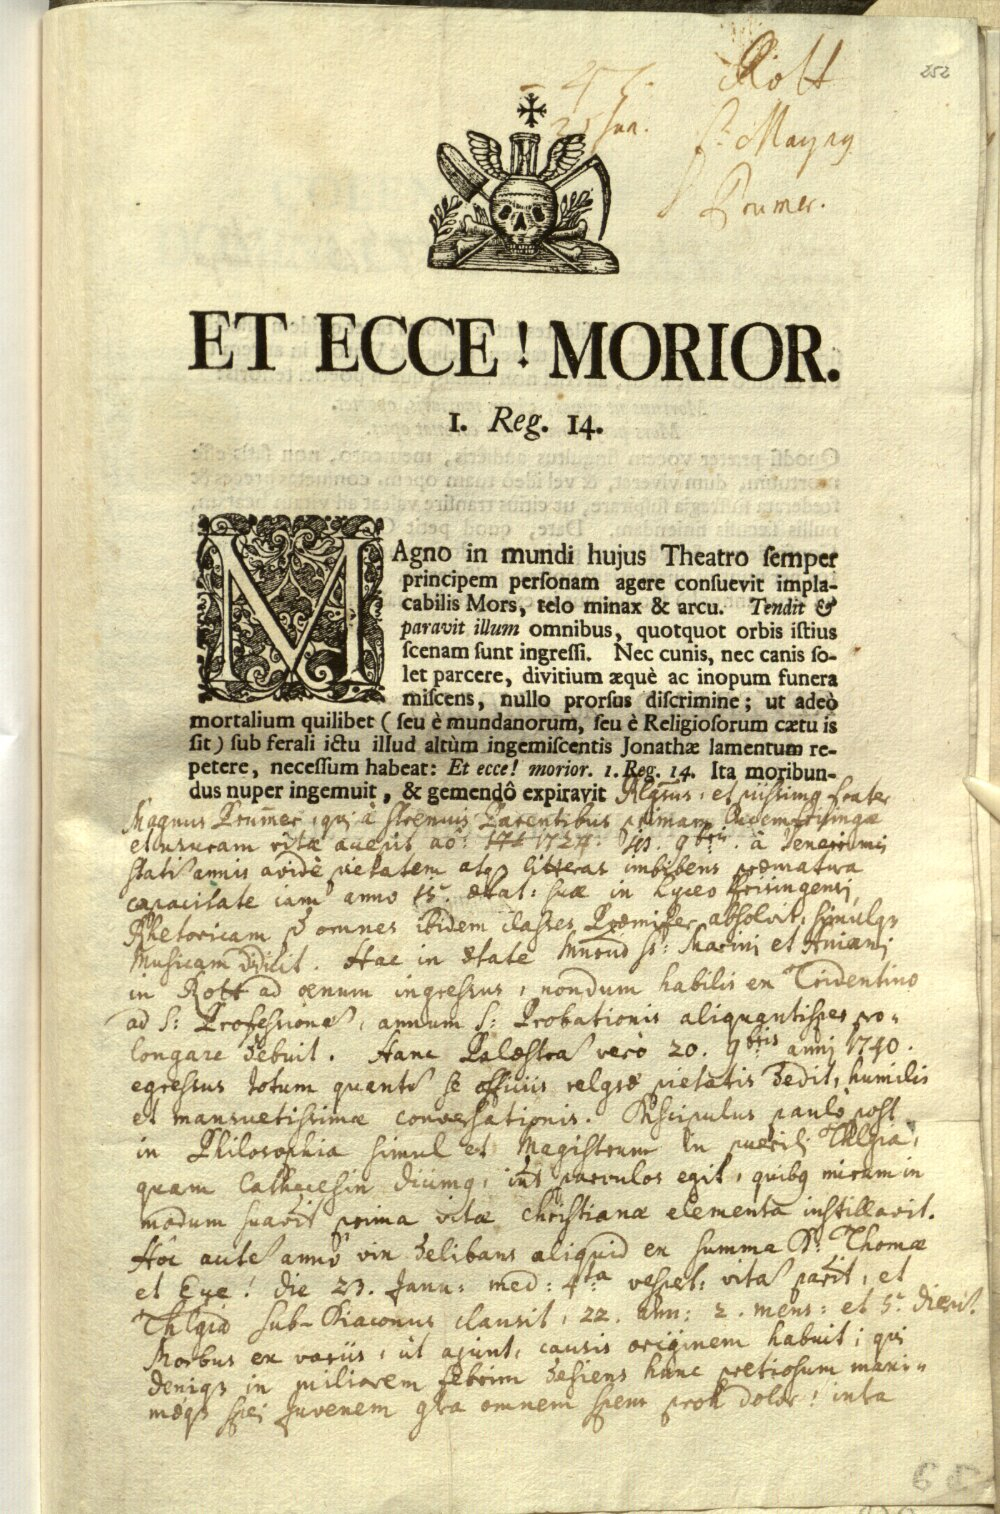 252
Rott
Jan.
Magng
Prumer.
ET ECCE! MORIOR.
1. Reg. 14.
MAgno in mundi hujus Theatro ſemper
principem perſonam agere conſuevit impla-
cabilis Mors, telo minax & arcu. Tendit &
paravit illum omnibus, quotquot orbis iſtius
ſcenam ſunt ingreſſi. Nec cunis, nec canis ſo-
let parcere, divitium æquè ac inopum funera
miſcens, nullo prorſus diſcrimine; ut adeò
mortalium quilibet (ſeu è mundanorum, ſeu è Religioſorum cætu is
ſit) ſub ferali ictu illud altùm ingemiſcentis Jonathæ lamentum re-
petere, neceſſum habeat: Et ecce! morior. 1. Reg. 14. Ita moribun-
dus nuper ingemuit, & gemendô expiravit Rlgsus, et piissimg frater
Magnus Prum̄er, qui à strenuis Parentibus primam
et usuram vitæ accepit aō: 1727. 9bris. à
statim annis avidè pietatem atq litteras imbibens præmatura
capacitate iam anno 15. ætat: suæ in Lyceo Frisingensi
Rhetoricam & omnes ibidem classes absolvit, simulqs
Musicam didicit. Hac in ætate Mnrūd ss: Marini et Aniani
in Rott ad œnum ingressus, nondum habilis ex Tridentino
ad S: Professionem, annum S: Probationis aliquantisper pro-
longare debuit. Hanc Palæstram verò 20. 9bris anni 1740.
egressus totum quantum se officiis relgsæ pietatis dedit, humilis
et mansuetissimæ conversationis. Discipulus paulò post
in Philosophia simul et Magistrum in puerili Thlgia,
quam Cathecesin dicimg, int parvulos egit, quibg mirum in
modum suavit prima vitæ christianæ elementa instillavit.
Hôc autem annô vix delibans aliquid ex summa D: Thomæ
et Eye! die 23. Janu: med: 4ta vespet: vitam parit, et
Thlgiā sub-Diaconus clausit, 22. ann: 2. mens: et 5. dierū.
Morbus ex variis, ut ajunt, causis originem habuit; qui
deniqs in miliarem febrim desiens hunc pretiosum maxi-
mæqs spei Juvenem gtra omnem spem proh dolor! intra